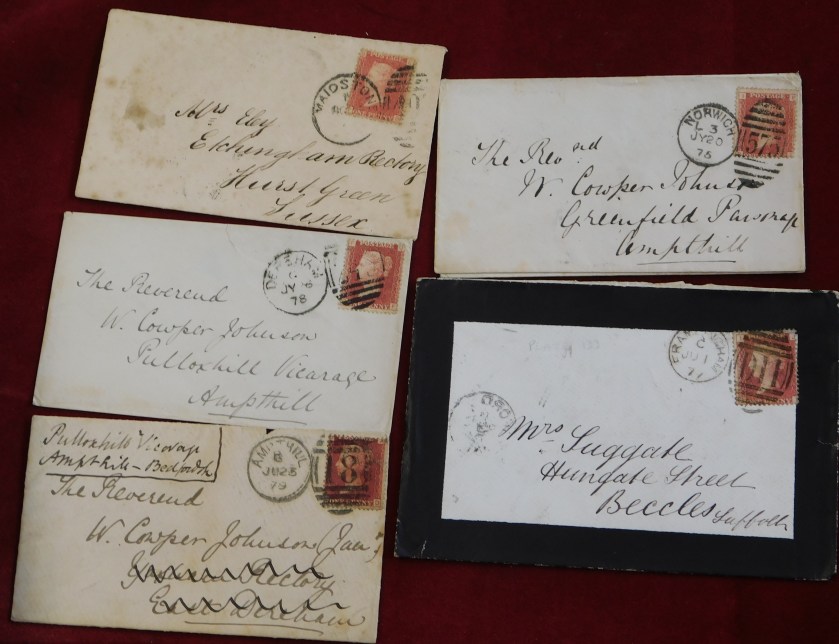 MAIDSTON
Mrs Eby
Etchingham Rectory
Hurst Green
Sussex
NORWICH
L 3
JY 20
76
575
The Revd
W. Cowper Johnson
Greenfield Parsonage
Ampthill
DEREHAM
C
JY
78
The Reverend
W. Cowper Johnson
Pulloxhill Vicarage
Ampthill
FRAMLINGHAM
C
JU 1
77
Mrs Suggate
Hungate Street
Beccles Suffolk
Pulloxhill Vicarage
Ampthill - Bedfordsh
AMPTHILL
B
JU 23
79
8
The Reverend
W. Cowper Johnson (Jun)
Rectory
East Dereham